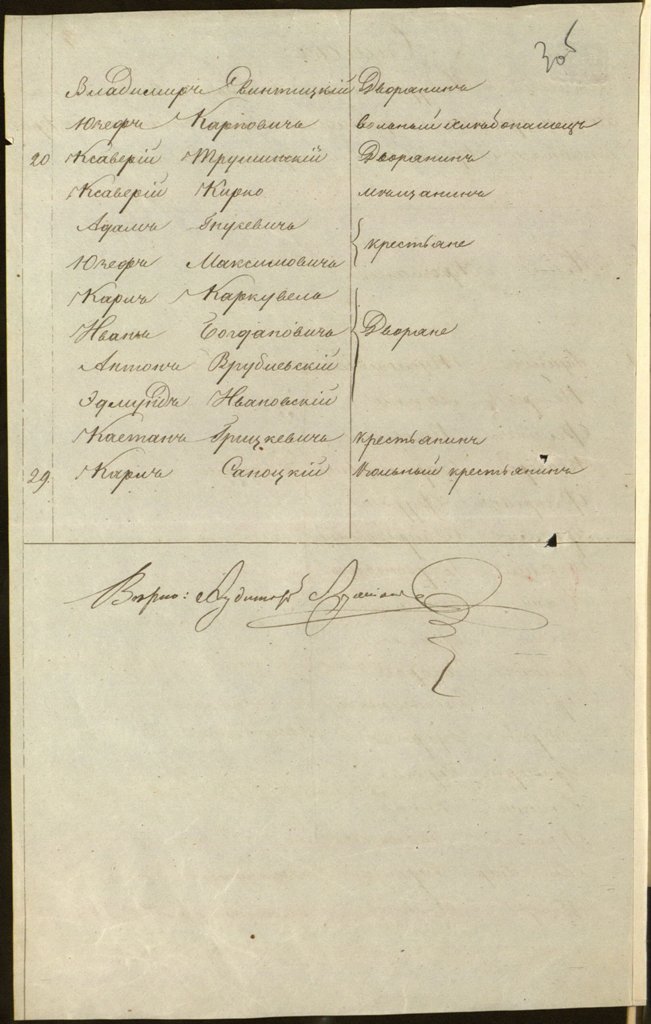 306
Владимиръ Свинтицкій Дворянинъ
Юзефъ Карповичъ вольный хлѣбопашецъ
20 Ксаверій Трушинскій Дворянинъ
Ксаверій Кирко мѣщанинъ
Адамъ
Юзефъ Максимовичъ крестьяне
Карлъ
Иванъ Богдановичъ Дворяне
Антонъ Врублевскій
Эдмундъ Ивановскій
Каетанъ Грицкевичъ крестьянинъ
29. Карлъ Сапоцкій вольный крестьянинъ
Вѣрно: Аудиторъ